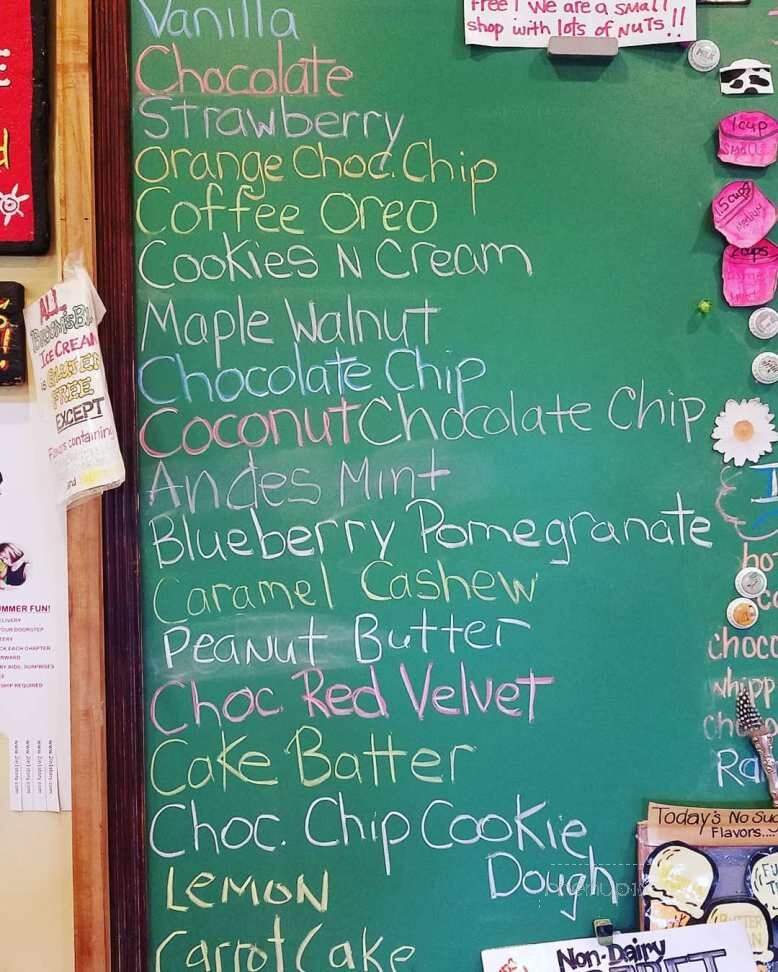 Vanilla
Chocolate
Strawberry
Orange Choc. Chip
Coffee Oreo
Cookies N Cream
Maple Walnut
Chocolate Chip
Coconut Chocolate Chip
Andes Mint
Blueberry Pomegranate
Caramel Cashew
Peanut Butter
Choc Red Velvet
Cake Batter
Choc. Chip Cookie
Dough
Lemon
Carrot Cake
Free! We are a small
shop with lots of NUTS!!
1 cup
small
1.5 cups
medium
cups
ALL
ICE CREAM
is GLUTEN
FREE
EXCEPT
Flavors containing
and
UMMER FUN!
ELIVERY
YOUR DOORSTEP
CK EACH CHAPTER
RWARD
SHIP REQUIRED
choco
whipp
Today's No Su
Flavors....
Non-Dairy